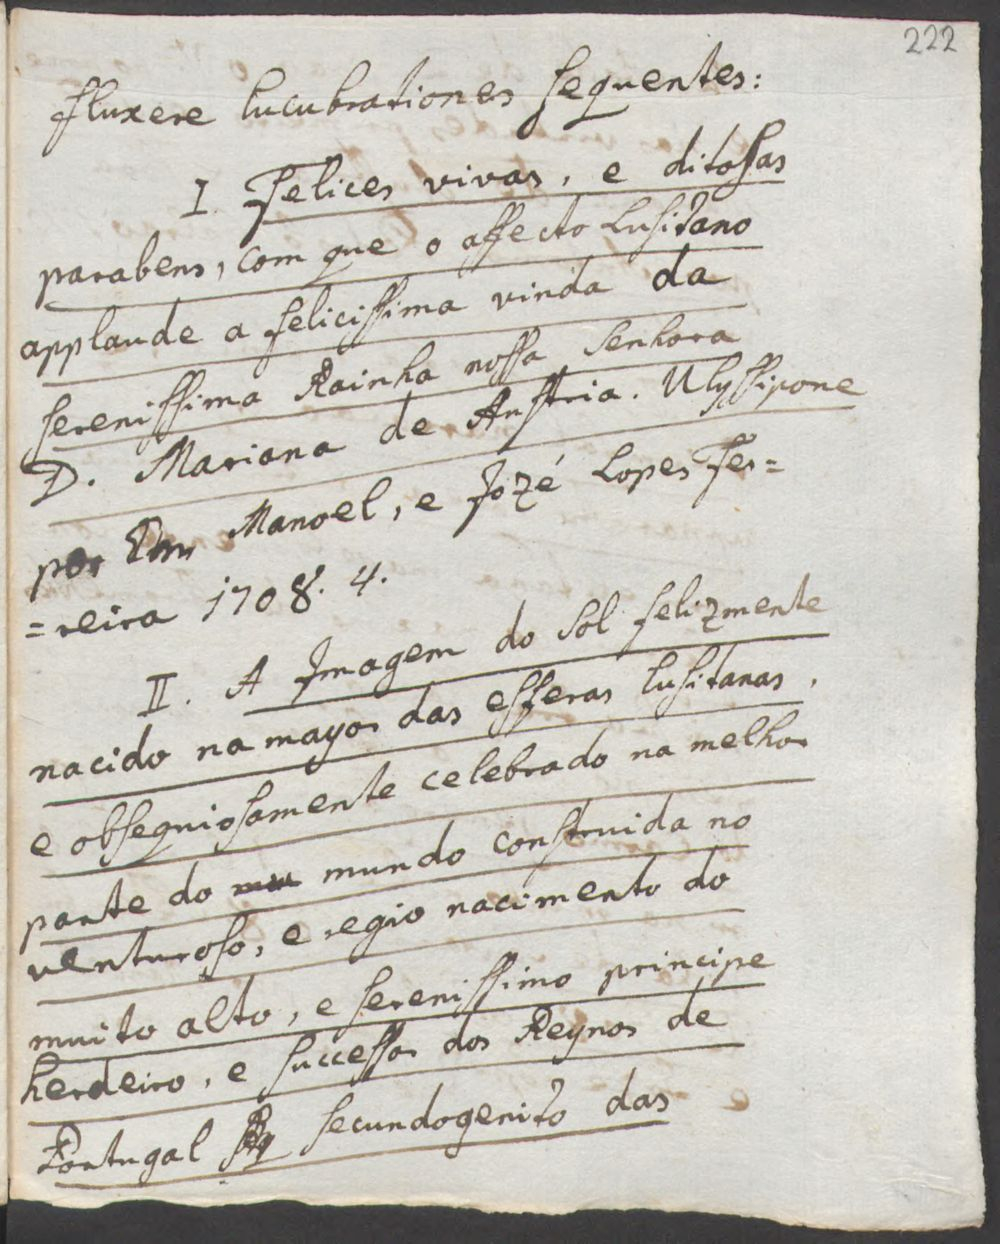 222
fluxere lucubrationes sequentes:
I. Felices vivas, e ditosas
parabens, com que o affecto Lusitano
applaude a felicissima vinda da
serenissima Rainha nossa senhora
D. Mariana de Austria. Ulyssipone
por Manoel, e Jozé Lopes Fer=
=reira 1708. 4.
II. A Imagem do Sol felizmente
nacido na mayor das esferas lusitanas,
e obsequiosamente celebrado na melhor
parte do mundo construida no
venturoso, e regio nacimento do
muito alto, e serenissimo principe
herdeiro, e successor dos Reynos de
Portugal secundogenito das